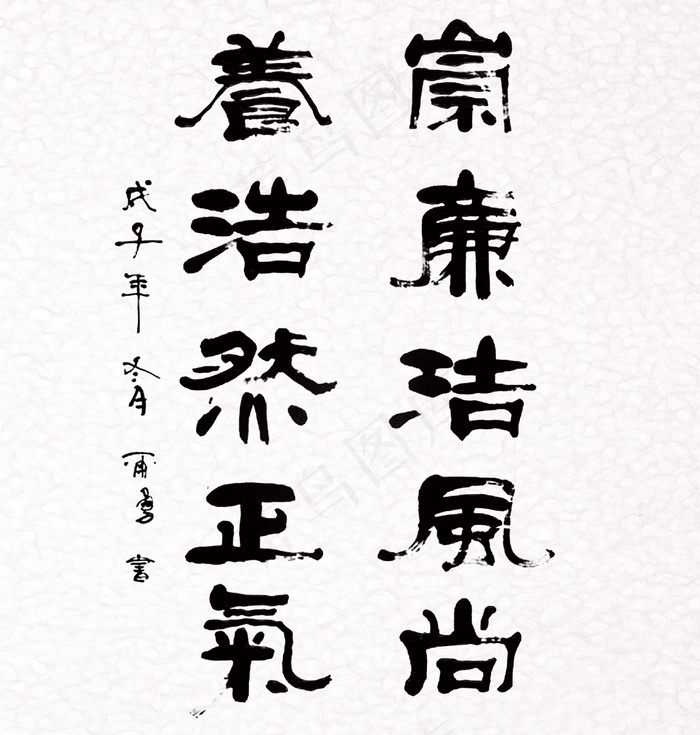 崇廉洁風尚
養浩然正氣
戊子年冬月書